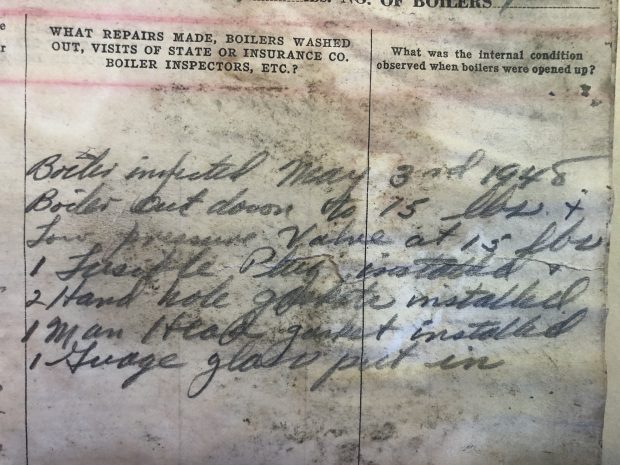 LBS. NO. OF BOILERS
WHAT REPAIRS MADE, BOILERS WASHED
OUT, VISITS OF STATE OR INSURANCE CO.
BOILER INSPECTORS, ETC.?
What was the internal condition
observed when boilers were opened up?
Boiler inspected May 3rd 1948
Boiler cut down to 15 lbs +
Low pressure Valve at 15 lbs
1 Fusible Plug installed +
2 Hand hole gaskets installed
1 Man Head gasket installed
1 Guage glass put in